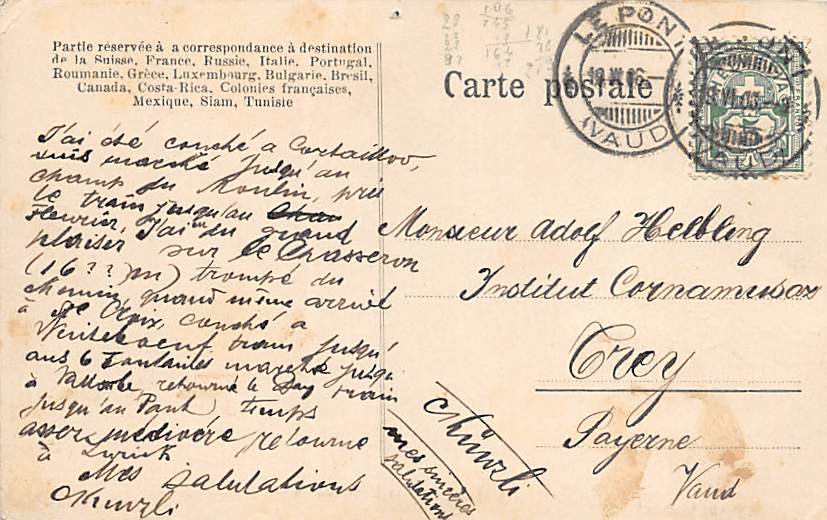 Partie réservée à a correspondance à destination
de la Suisse, France, Russie, Italie, Portugal,
Roumanie, Grèce, Luxembourg, Bulgarie, Bresil,
Canada, Costa-Rica, Colonies françaises,
Mexique, Siam, Tunisie
Carte postale
LE PONT
(VAUD)
J'ai été couché a Cortaillod,
suis marché jusqu'au
champ du Moulin, pris
le train jusqu'au
Fleurier, J'ai eu du grand
plaisir sur le Chasseron
(16??m) trompé du
chemin, quand même arrivé
à Ste Croix, couché a
train jusqu'
aus 6 Fontaines marché jusqu'
à Vallorbe, retourné le Day train
jusqu'au Pont, temps
assez mediocre retourne
à Zurich
Mes Salutations
Kunzli
Monsieur Adolf Helbling
Institut Cornamusaz
Trey
Payerne
Vaud
Künzli
mes sincères
salutations